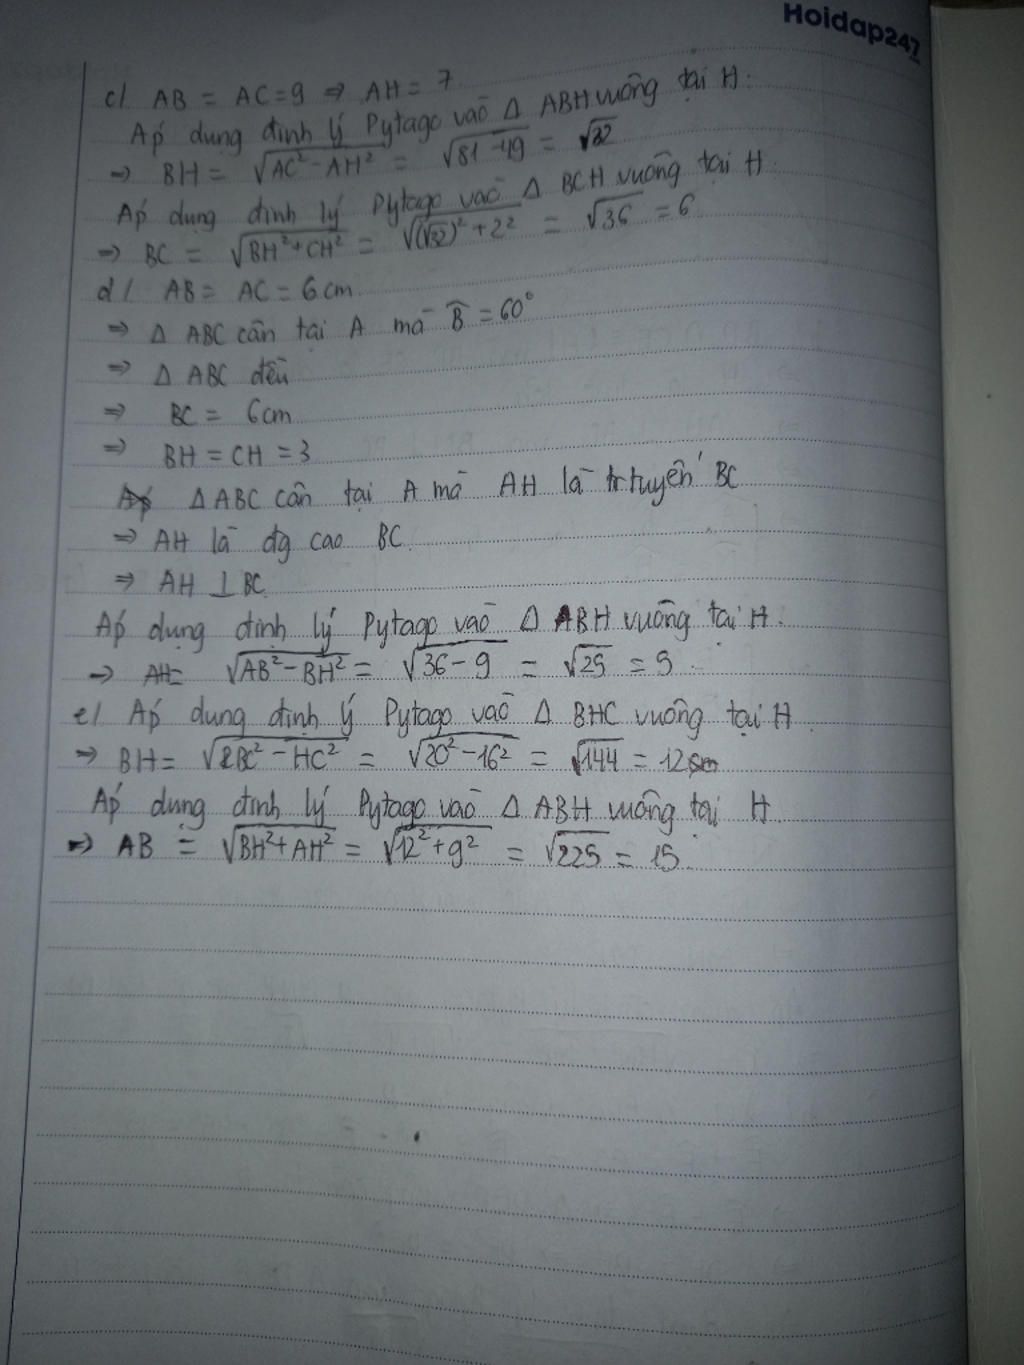 Hoidap247
c/ AB = AC=9 ⇒ AH = 7
Áp dụng định lý Pytago vào Δ ABH vuông tại H.
⇒ BH = √AC² - AH² = √81-49 = √32
Áp dụng định lý Pytago vào Δ BCH vuông tại H.
⇒ BC = √BH²+CH² = √(√32)² + 2² = √36 = 6
d/ AB = AC = 6cm
⇒ Δ ABC cân tại A mà B̂ = 60°
⇒ Δ ABC đều
⇒ BC = 6cm
⇒ BH = CH = 3
Áp Δ ABC cân tại A mà AH là tr tuyến BC
⇒ AH là đg cao BC
⇒ AH ⊥ BC
Áp dụng định lý Pytago vào Δ ABH vuông tại H.
⇒ AH= √AB² - BH² = √36 - 9 = √25 = 5
e/ Áp dụng định lý Pytago vào Δ BHC vuông tại H
⇒ BH = √BC² - HC² = √20² - 16² = √144 = 12cm
Áp dụng định lý Pytago vào Δ ABH vuông tại H.
⇒ AB = √BH²+AH² = √12² + 9² = √225 = 15